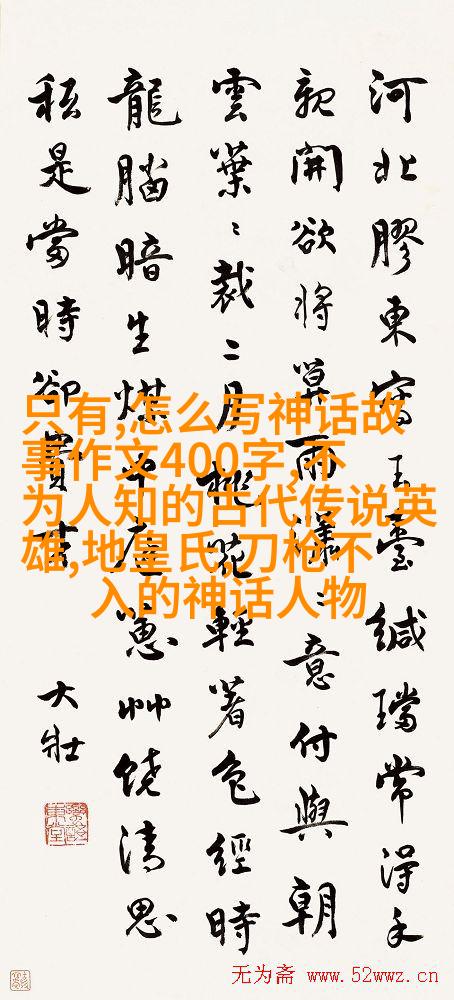 河北膠東寫玉臺緘璫常得手
親開欲將雨意付與朝
雲葉〻裁二月桃花輕著色經時
龍腦暗生煤半庭艸饒清思
秖是當時卻費
大壯
只有,怎么写神话故
事作文400字,不
为人知的古代传说英
雄,地皇氏,刀枪不
入的神话人物
无为斋 www.52wwz.cn